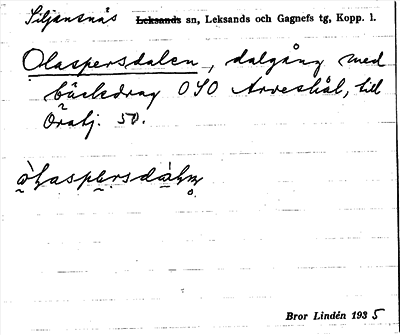 Siljansnäs Leksands sn, Leksands och Gagnefs tg, Kopp. l.
Olaspersdalen, dalgång med
bäckdrag OSO Arveshål, till
Oratj. 50.
Bror Lindén 1935